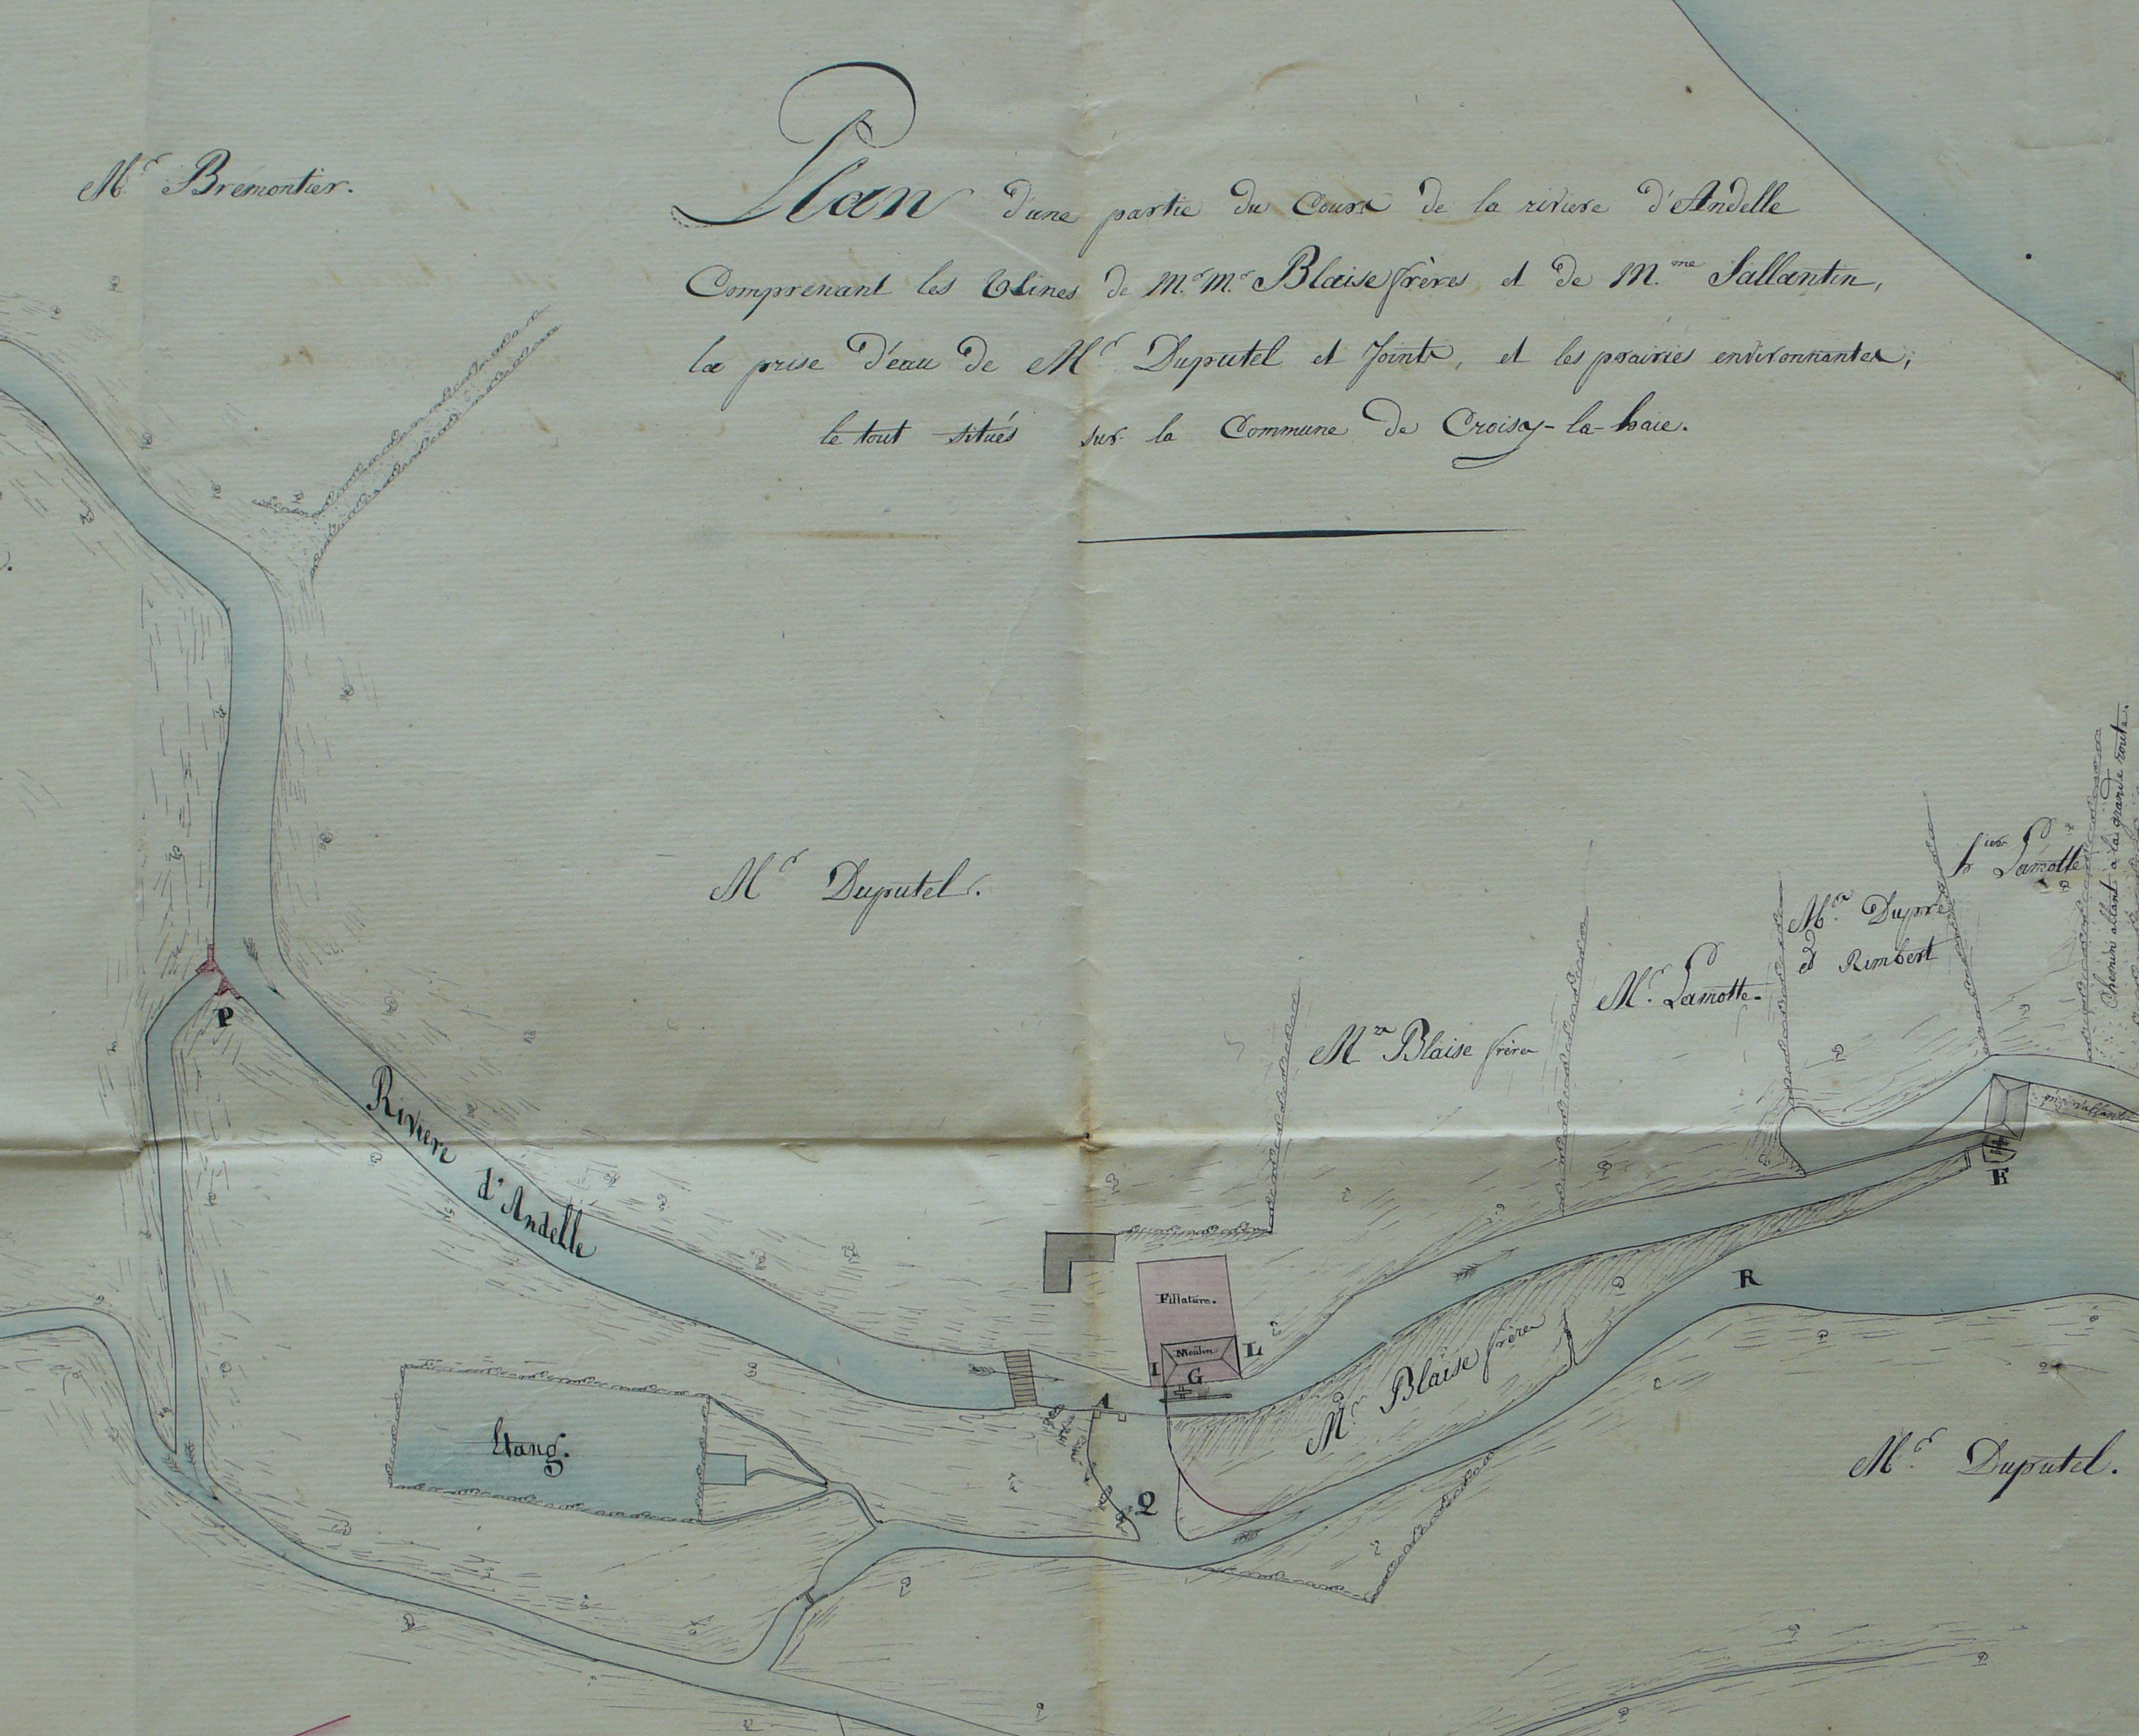 Mr. Brémontier.
Plan d'une partie du Cours de la riviere d'Andelle
Comprenant les Usines de Mr. Mr. Blaise frères et de M.me Sallantin,
la prise d'eau de Mr Duputel et Joints, et les prairies environnantes,
le tout situés sur la Commune de Croisy-la-haie.
Mr Duputel.
hiers Lamotte
Mrs Dupré
et Rimbert
Mr. Lamotte.
Mrs Blaise frères
Chemin allant à la grande route.
P
Riviere d'Andelle
E
R
Fillature.
Moulin
I
L
G
A
Mrs Blaise frères
Etang.
Q
Mr. Duputel.